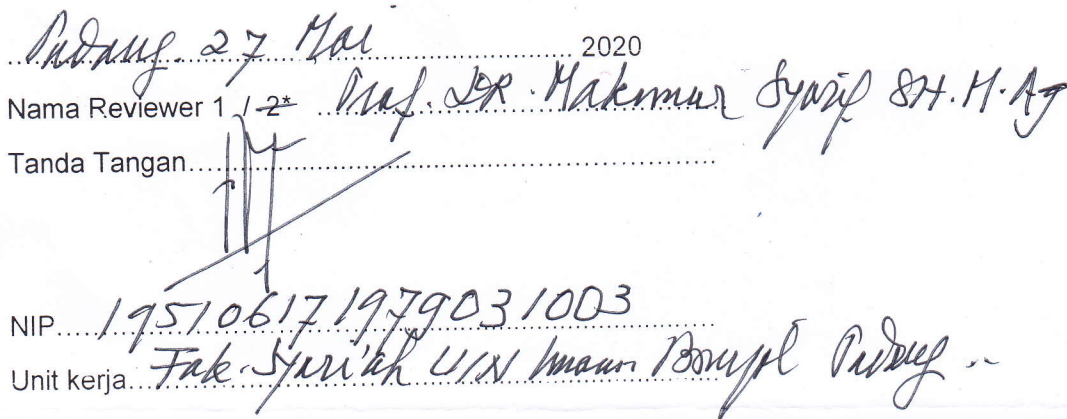 Padang. 27 Mai 2020
Nama Reviewer 1 / 2* Prof. DR. Makmur Syarif SH. M. Ag
Tanda Tangan
NIP 195106171979031003
Unit kerja Fak. Syari'ah UIN Imam Bonjol Padang